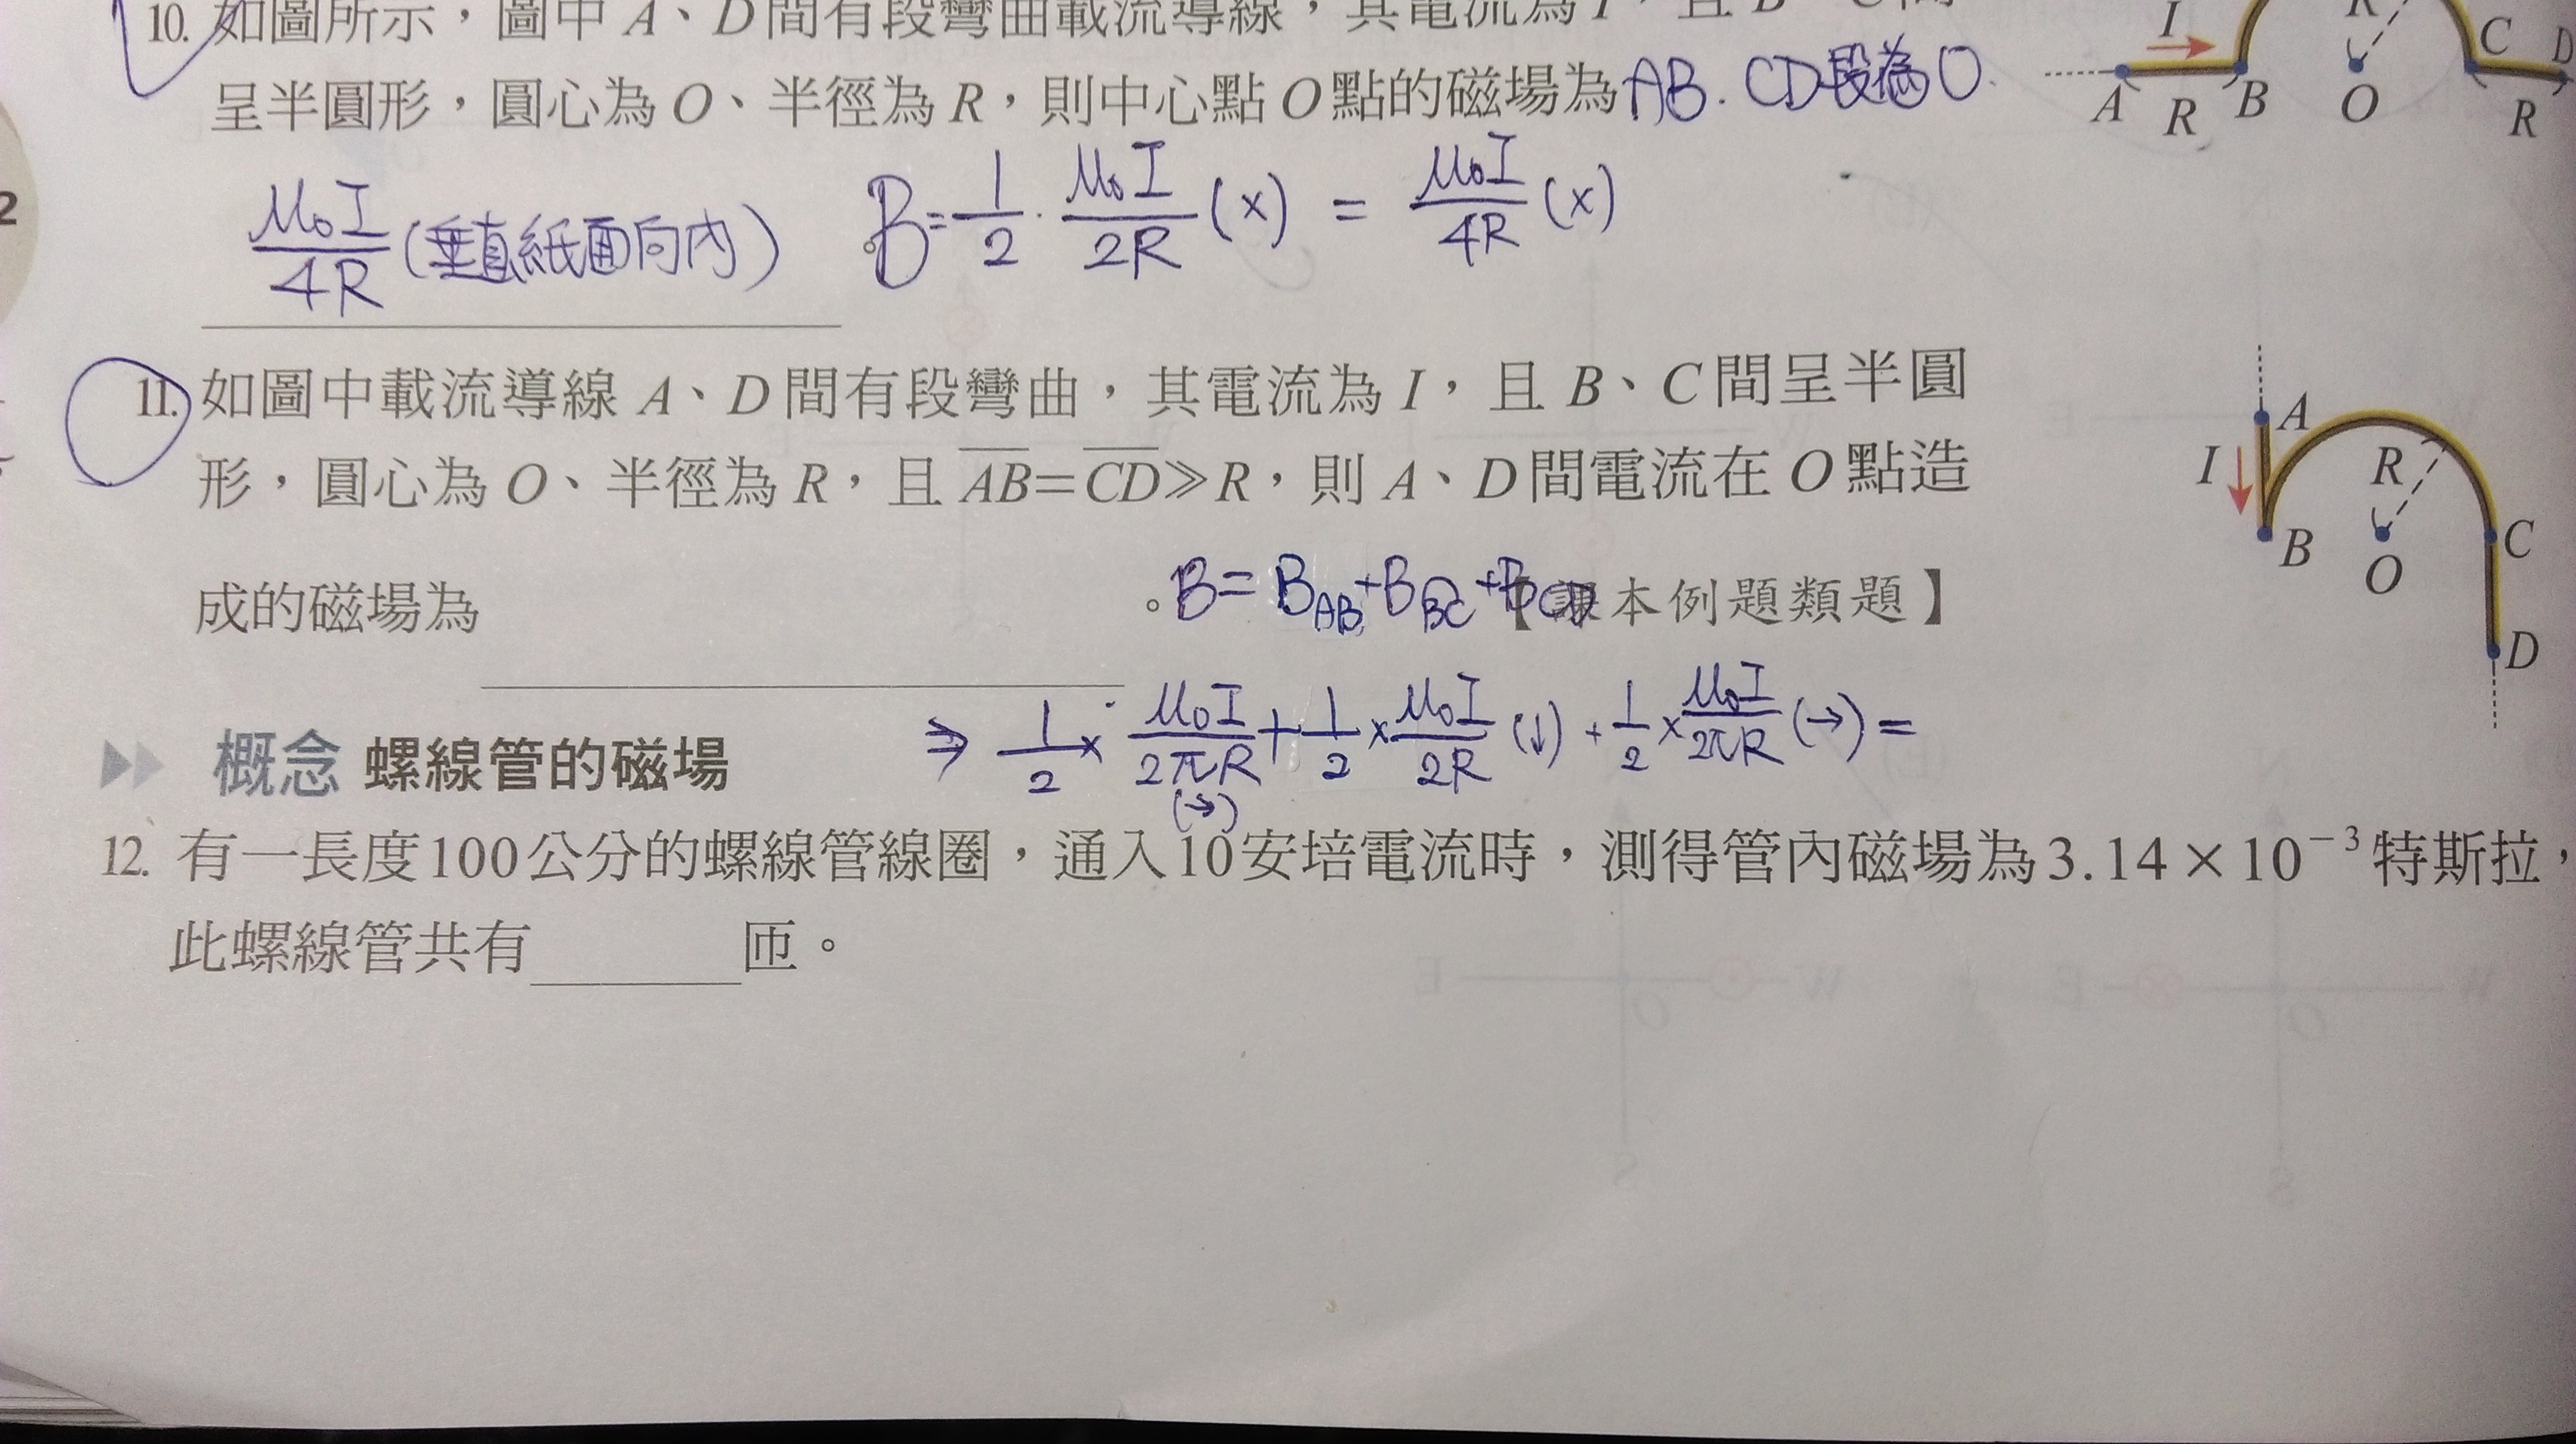 10. 如圖所示，圖中 A、D 間有段彎曲載流導線，其電流為 I，且 B、C 間
呈半圓形，圓心為 O、半徑為 R，則中心點 O 點的磁場為 AB. CD段為0.
μ₀I/4R (垂直紙面向內) 。 B = 1/2 · μ₀I/2R (×) = μ₀I/4R (×)
I
R
A R B O C D R
11. 如圖中載流導線 A、D 間有段彎曲，其電流為 I，且 B、C 間呈半圓
形，圓心為 O、半徑為 R，且 A̅B̅=C̅D̅≫R，則 A、D 間電流在 O 點造
成的磁場為 。【課本例題類題】
B = B_AB + B_BC + B_CD
⇒ 1/2 × μ₀I/2πR (→) + 1/2 × μ₀I/2R (↓) + 1/2 × μ₀I/2πR (→) =
A
I R
B O C
D
概念 螺線管的磁場
12. 有一長度100公分的螺線管線圈，通入10安培電流時，測得管內磁場為3.14×10⁻³特斯拉，
此螺線管共有 匝。
2